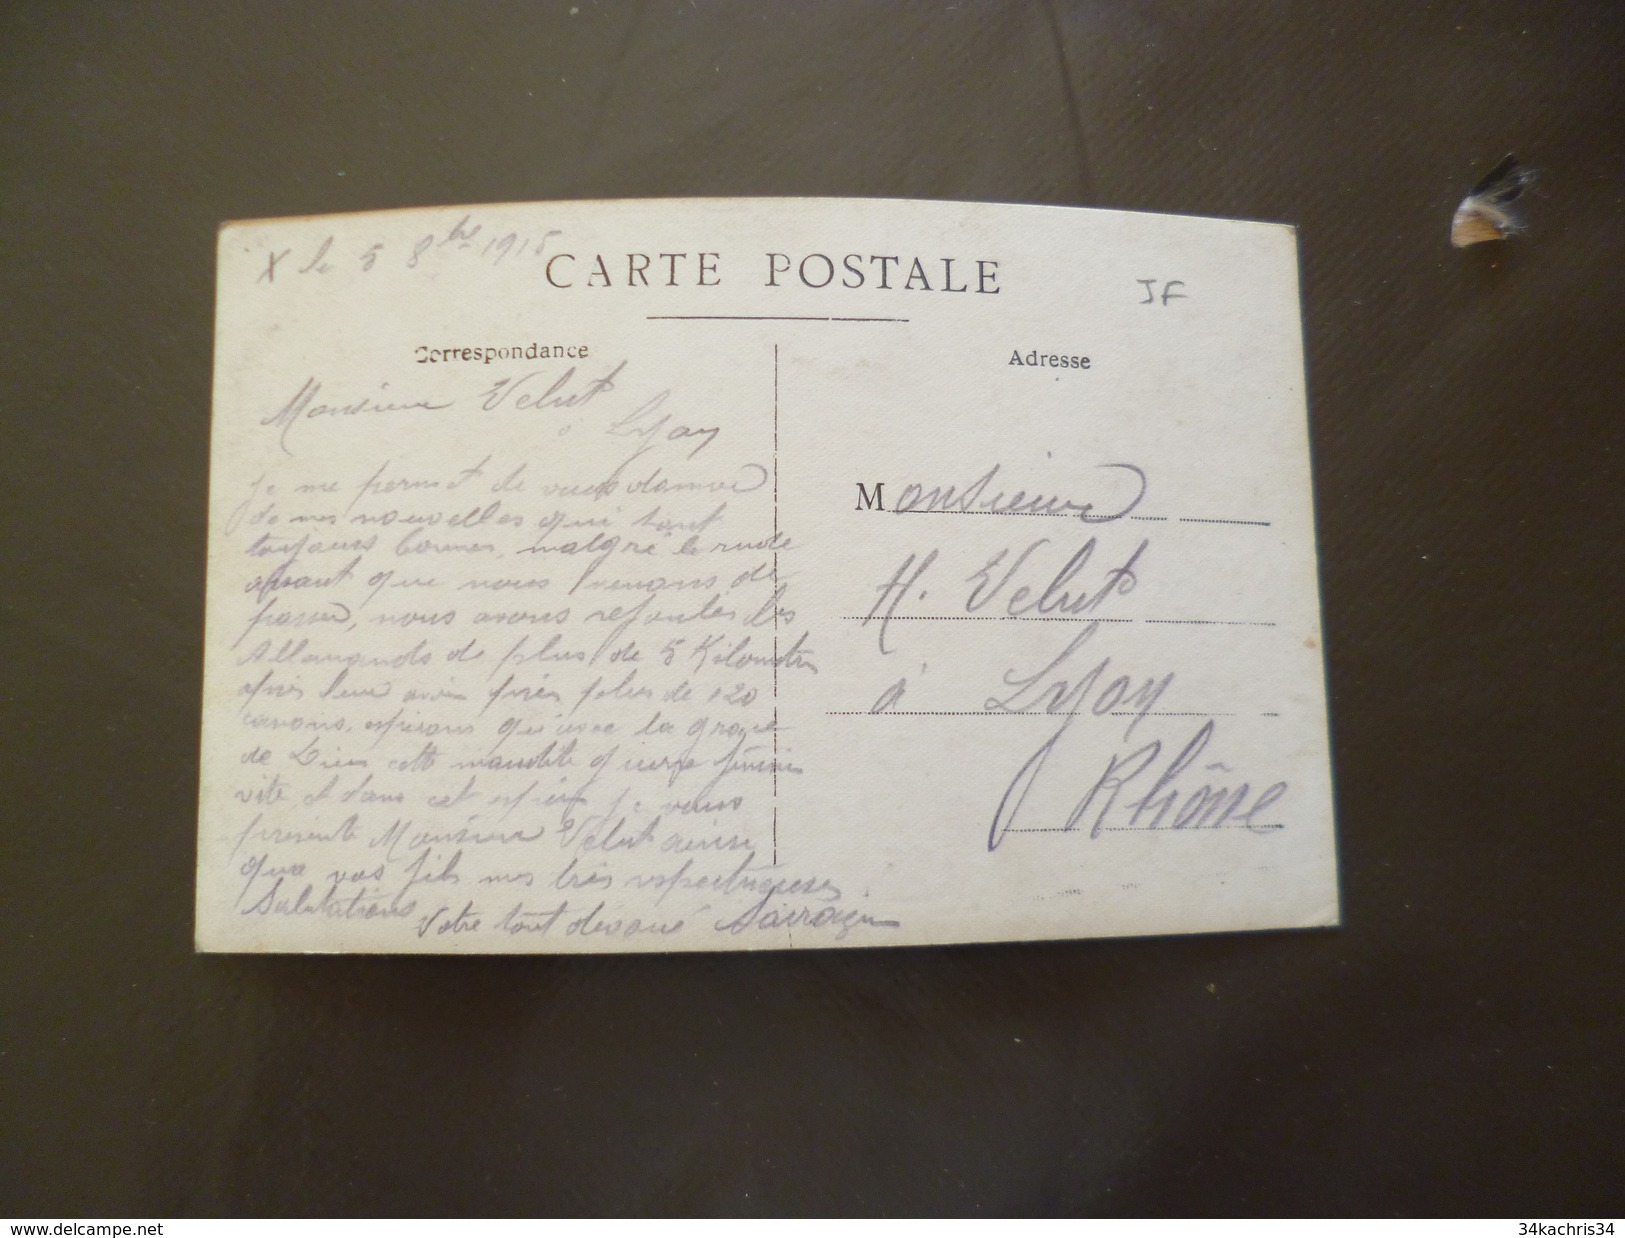 X le 5 8bre 1915
CARTE POSTALE
JF
Correspondance
Monsieur Velut
à Lyon
Je me permet de vous donner
de mes nouvelles qui sont
toujours bonnes, malgré le rude
assaut que nous venons de
passer, nous avons refoulés les
Allemands de plus de 5 Kilomètres
après leur avoir pris plus de 120
canons, espérons qu'avec la grace
de Dieu cette maudite guerre finira
vite, et dans cet espoir je vous
présente Monsieur Velut ainsi
que vos fils mes très respectueuses
Salutations
Votre tout dévoué Sarrazin
Adresse
Monsieur
H. Velut
à Lyon
Rhône
www.delcampe.net
34kachris34